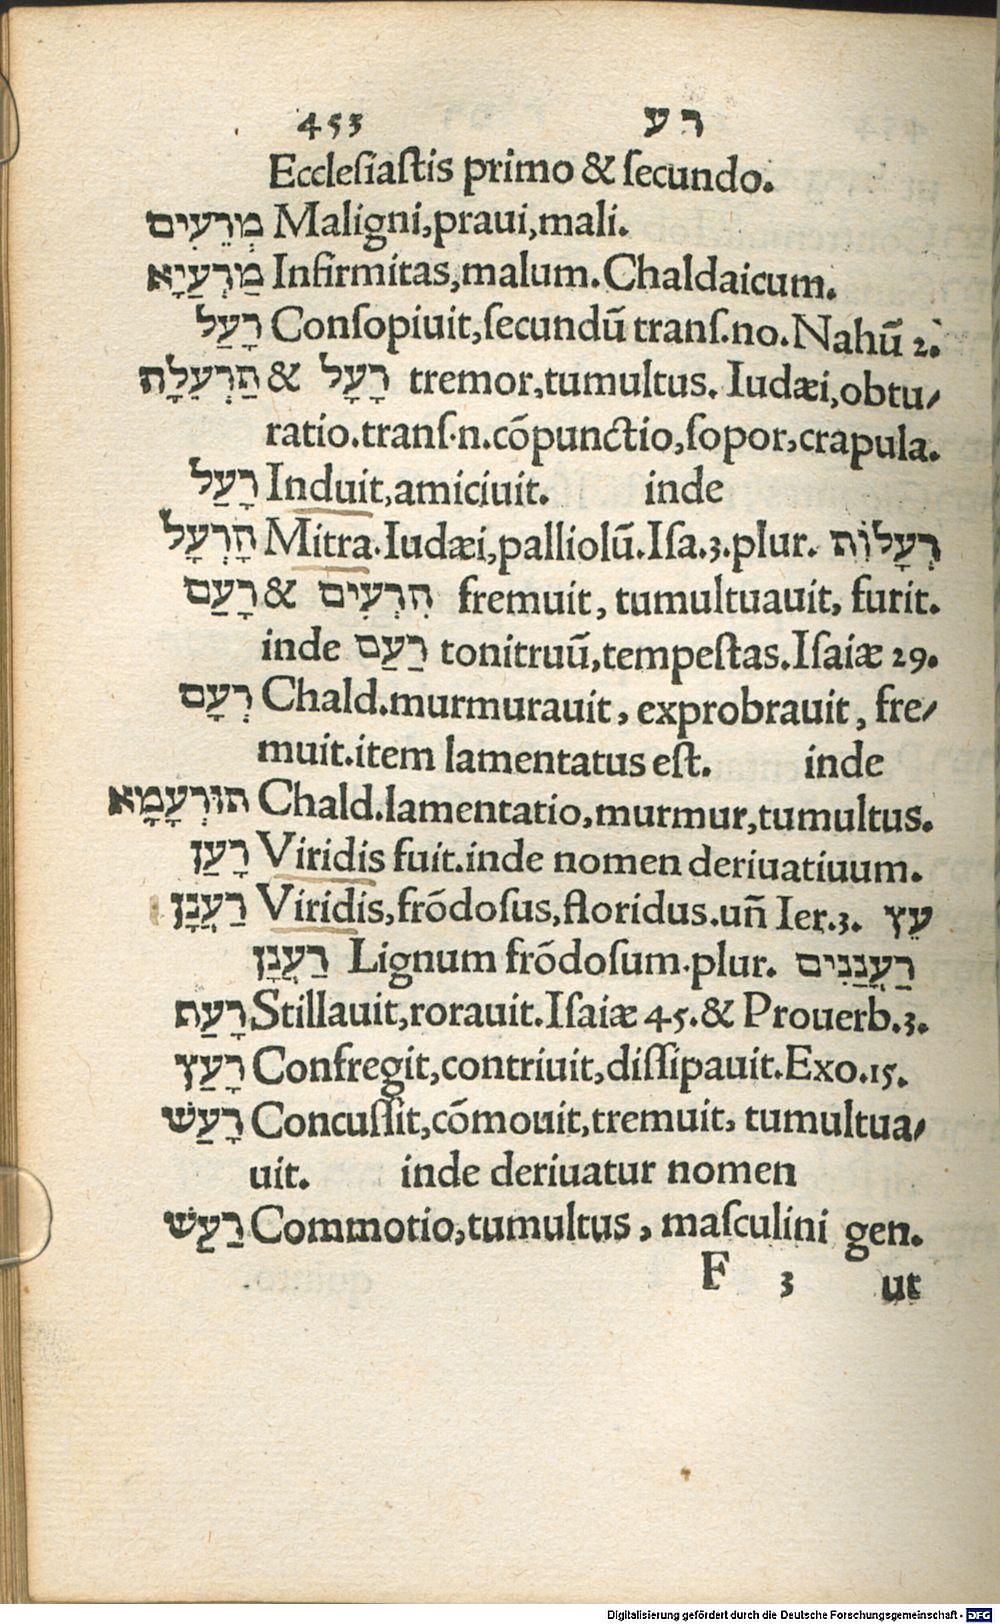 453 רע
Eccleſiaſtis primo & ſecundo.
מְרֵעִים Maligni,praui,mali.
מַרְעַיָא Infirmitas,malum.Chaldaicum.
רָעַל Conſopiuit,ſecundū tranſ.no.Nahū 2.
הַרְעָלָה & רָעָל tremor,tumultus. Iudæi,obtu/
ratio.tranſ.n.cōpunctio,ſopor,crapula.
רָעַל Induit,amiciuit. inde
הָרְעָל Mitra.Iudæi,palliolū.Iſa.3.plur. רְעָלוֹת
רָעַם & הִרְעִים fremuit, tumultuauit, furit.
inde רַעַם tonitruū,tempeſtas.Iſaiæ 29.
רְעָם Chald.murmurauit, exprobrauit, fre/
muit.item lamentatus eſt. inde
תּוּרְעָמָא Chald.lamentatio,murmur,tumultus.
רָעַן Viridis fuit.inde nomen deriuatiuum.
רַעֲנָן Viridis,frōdoſus,floridus.uñ Ier.3. עֵץ
רַעֲנָן Lignum frōdoſum.plur. רַעֲנַנִים
רָעַת Stillauit,rorauit.Iſaiæ 45.& Prouerb.3.
רָעַץ Confregit,contriuit,diſſipauit.Exo.15.
רָעַשׁ Concuſſit,cōmouit,tremuit, tumultua/
uit. inde deriuatur nomen
רַעַשׁ Commotio,tumultus, maſculini gen.
F 3 ut
Digitalisierung gefördert durch die Deutsche Forschungsgemeinschaft - DFG